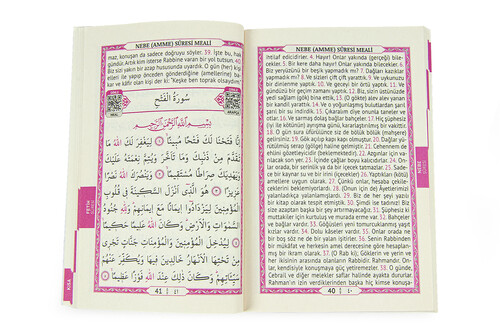 NEBE (AMME) SÛRESİ MEALİ
ihtilaf edicidirler. 4. Hayır! Onlar yakında (gerçeği) bile-
cekler. 5. Bir kere daha hayır! Onlar yakında bilecekler. 6.
Biz yeryüzünü bir beşik yapmadık mı? 7. Dağları kazıklar
yapmadık mı? 8. Ve sizleri çift çift yarattık. 9. Uykunuzu
dinlenme yaptık. 10. Ve geceyi bir örtü yaptık. 11. Ve
gündüzü geçim zamanı yaptık. 12. Biz, sizin üstünüzde
yedi sağlam (gök) bina ettik. 13. (O gökte) alev alev yanan
bir kandil yarattık. 14. Ve o yoğunlaşmış bulutlardan şarıl
şarıl bir su indirdik. 15. Onunla çıkaralım diye; taneler ve
otlar. 16. Ve sarmaş dolaş bağlar bahçeler. 17. Hiç şüphesiz
(iyi ile kötünün) ayırma günü, kararlaştırılmış bir vakittir.
18. O gün sûra üfürülünce siz de bölük bölük (mahşere)
gelirsiniz. 19. Gök açılıp kapı kapı olmuştur. 20. Dağlar
yürütülüp serap (gölge) haline gelmiştir. 21. Cehennem de
elbette
gözetleyici (beklemektedir). 22. Azgınlar için va-
rılacak son yer. 23. İçinde çağlar boyu kalıcıdırlar. 24. On-
lar orada, bir serinlik ve içecek tatmayacaklar. 25. Sade-
ce bir kaynar su ve bir irini (içecekler) 26. Yaptıkları (kötü)
amellere uygun olarak. 27. Çünkü onlar, hesaba çekile-
ceklerini beklemezlerdi. 28. (Onun için de) Âyetlerimizi
yalanladıkça yalanlamışlardı. 29. Biz de her bir şeyi yazılı
bir kitap olarak tespit etmiştik. 30. Şimdi ise tadınız! Biz
size azaptan başka bir şey artırmayacağız. 31. Şüphesiz ki
muttakiler için kurtuluş ve murada erme var. 32. Bahçeler
var, üzümler var. 33. Göğüsleri yeni tomurcuklanmış yaşıt
kızlar var. 34. Dolu kâseler vardır. 35. Onlar orada ne
bir boş söz ne de bir yalan işitirler. 36. Senin Rabbinden
bir mükâfat ve herkesin amel derecesine göre hesaplanmış
birer ihsan olmak üzere. 37. (O Rab ki); Göklerin ve yerin ve
ikisinin arasındakilerin Rabbidir. Rahmandır. Rahmandır. On-
lar, kendisiyle konuşmaya güç yetiremezler. 38. O günde,
Cebrail ve diğer melekler saflar halinde ayakta dururlar.
Rahman'ın izin verdikleriden başka hiç kimse konuşa-
40 ٤٠
NEBE
SÛRESİ
NEBE (AMME) SÛRESİ MEALİ
maz, konuşan da sadece doğruyu söyler. 39. İşte bu, hak
gündür. Artık kim isterse Rabbine varan bir yol tutsun. 40.
Biz sizi yakın bir azap hususunda uyardık. O gün (her) kişi
elleri ile yapıp önceden gönderdiğine (amellerine) ba-
kar ve kâfir olan kişi der ki: "Keşke ben toprak olsaydım."
سُورَةُ الْفَتْحِ
بِسْمِ اللّٰهِ الرَّحْمٰنِ الرَّحِيمِ
اِنَّا فَتَحْنَا لَكَ فَتْحًا مُبِينًا ۝ لِيَغْفِرَ لَكَ اللّٰهُ مَا
تَقَدَّمَ مِنْ ذَنْبِكَ وَمَا تَاَخَّرَ وَيُتِمَّ نِعْمَتَهُ عَلَيْكَ
وَيَهْدِيَكَ صِرَاطًا مُسْتَقِيمًا ۝ وَيَنْصُرَكَ اللّٰهُ نَصْرًا
عَزِيزًا ۝ هُوَ الَّذِى اَنْزَلَ السَّكِينَةَ فِى قُلُوبِ
الْمُؤْمِنِينَ لِيَزْدَادُوا اِيمَانًا مَعَ اِيمَانِهِمْ وَلِلّٰهِ جُنُودُ
السَّمٰوَاتِ وَالْاَرْضِ وَكَانَ اللّٰهُ عَلِيمًا حَكِيمًا ۝
لِيُدْخِلَ الْمُؤْمِنِينَ وَالْمُؤْمِنَاتِ جَنَّاتٍ تَجْرِى
مِنْ تَحْتِهَا الْاَنْهَارُ خَالِدِينَ فِيهَا وَيُكَفِّرَ عَنْهُمْ
سَيِّئَاتِهِمْ وَكَانَ ذٰلِكَ عِنْدَ اللّٰهِ فَوْزًا عَظِيمًا ۝
41 ٤١
FETİH
SÛRESİ
KISA